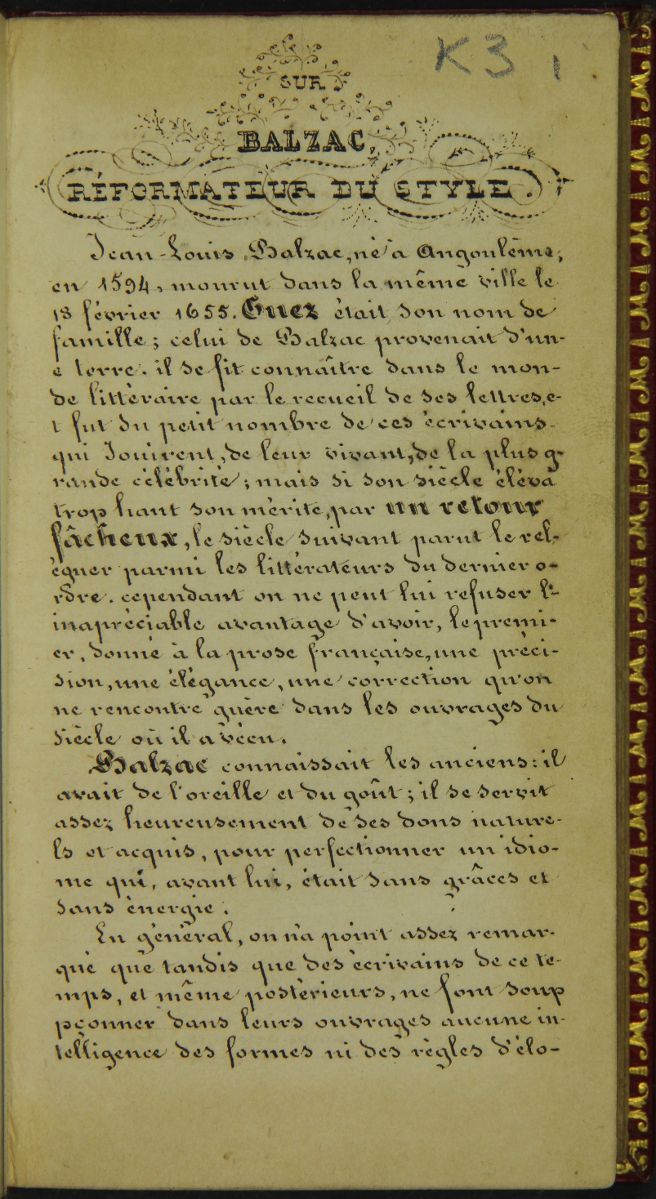 K3 1
SUR
BALZAC,
RÉFORMATEUR DU STYLE.
Jean-Louis Balzac, né a Angoulême,
en 1594, mourut dans la même ville le
18 février 1655. Guez était son nom de
famille; celui de Balzac provenait d'un-
e terre. il se fit connaître dans le mon-
de littéraire par le recueil de ses lettres, e-
t fut du petit nombre de ces écrivains
qui Jouirent, de leur vivant, de la plus g-
rande célébrité; mais si son siècle éléva
trop haut son mérite, par un retour
fâcheux, le siècle suivant parut le rel-
éguer parmi les littérateurs du dernier o-
rdre. cependant on ne peut lui refuser l'-
inapréciable avantage d'avoir, le premi-
er, donné à la prose française, une préci-
sion, une élégance, une correction qu'on
ne rencontre guère dans les ouvrages du
siècle où il a vécu.
Balzac connaissait les anciens: il
avait de l'oreille et du goût; il se servit
assez heureusement de ses dons nature-
ls et acquis, pour perfectionner un idio-
me qui, avant lui, était sans grâces et
sans énergie.
En général, on n'a point assez remar-
qué que tandis que des écrivains de ce te-
mps, et même postérieurs, ne font soup
pçonner dans leurs ouvrages aucune in-
telligence des formes ni des règles d'élo-